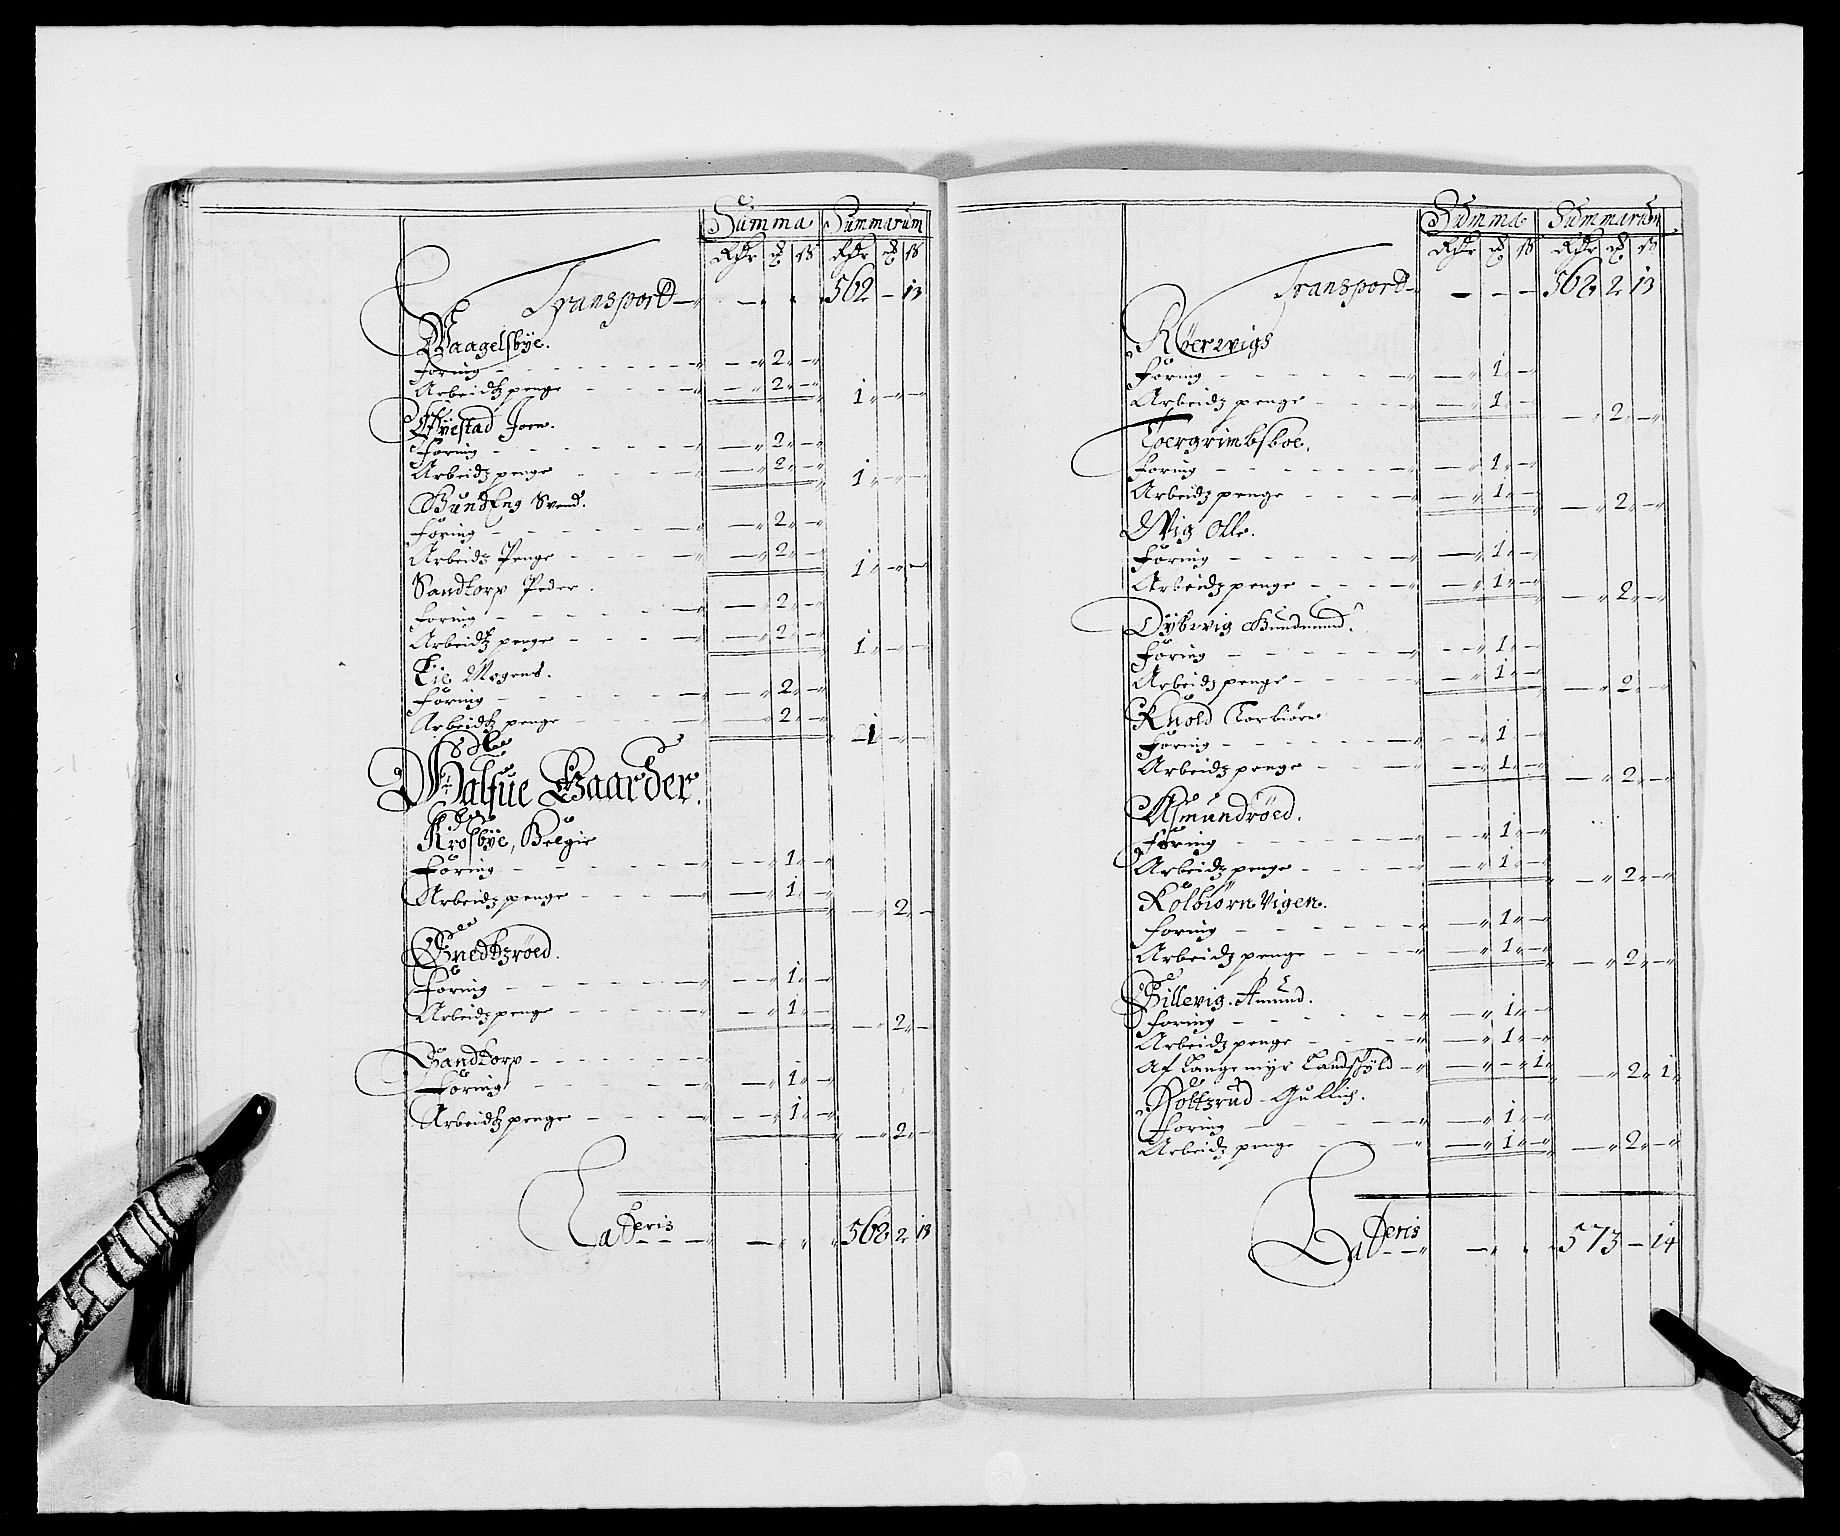 Summa Summarum
Rdr ₰ ß Rdr ₰ ß
Transport — 562 — 13
Waagelsbye.
foring — 2 —
Arbeidtz penge — 2 — 1 — —
Joen.
foring — 2 —
Arbeidtz penge — 2 — 1 — —
Svend.
foring — 2 —
Arbeidtz Penge — 2 — 1 — —
Sandtorp Peder.
foring — 2 —
Arbeidtz penge — 2 — 1 — —
Lie Mogens.
foring — 2 —
Arbeidtz penge — 2 — 1 — —
Halfue Gaarder.
Krosbye, Helgie
foring — 1 —
Arbeidtz penge — 1 — — 2 —
foring — 1 —
Arbeidtz penge — 1 — — 2 —
Sandtorp
foring — 1 —
Arbeidtz penge — 1 — — 2 —
Lateris — 568 2 13
Summa Summarum
Rdr ₰ ß Rdr ₰ ß
Transport — 568 2 13
Röervigs
foring — 1 —
Arbeidtz penge — 1 — — 2 —
Toergrimbsboe.
foring — 1 —
Arbeidtz penge — 1 — — 2 —
Wig Olle.
foring — 1 —
Arbeidtz penge — 1 — — 2 —
Dybvig Gundmund.
foring — 1 —
Arbeidtz penge — 1 — — 2 —
Knold Torbiörn
foring — 1 —
Arbeidtz penge — 1 — — 2 —
Asmundröed.
foring — 1 —
Arbeidtz penge — 1 — — 2 —
Kolbiörn Vigen.
foring — 1 —
Arbeidtz penge — 1 — — 2 —
Gillevig. Amund.
foring — 1 —
Arbeidtz penge — 1 —
Af Langemyr Landskyld — — 1 — 2 1
Gullich.
foring — 1 —
Arbeidtz penge — 1 — — 2 —
Lateris — 573 — 14